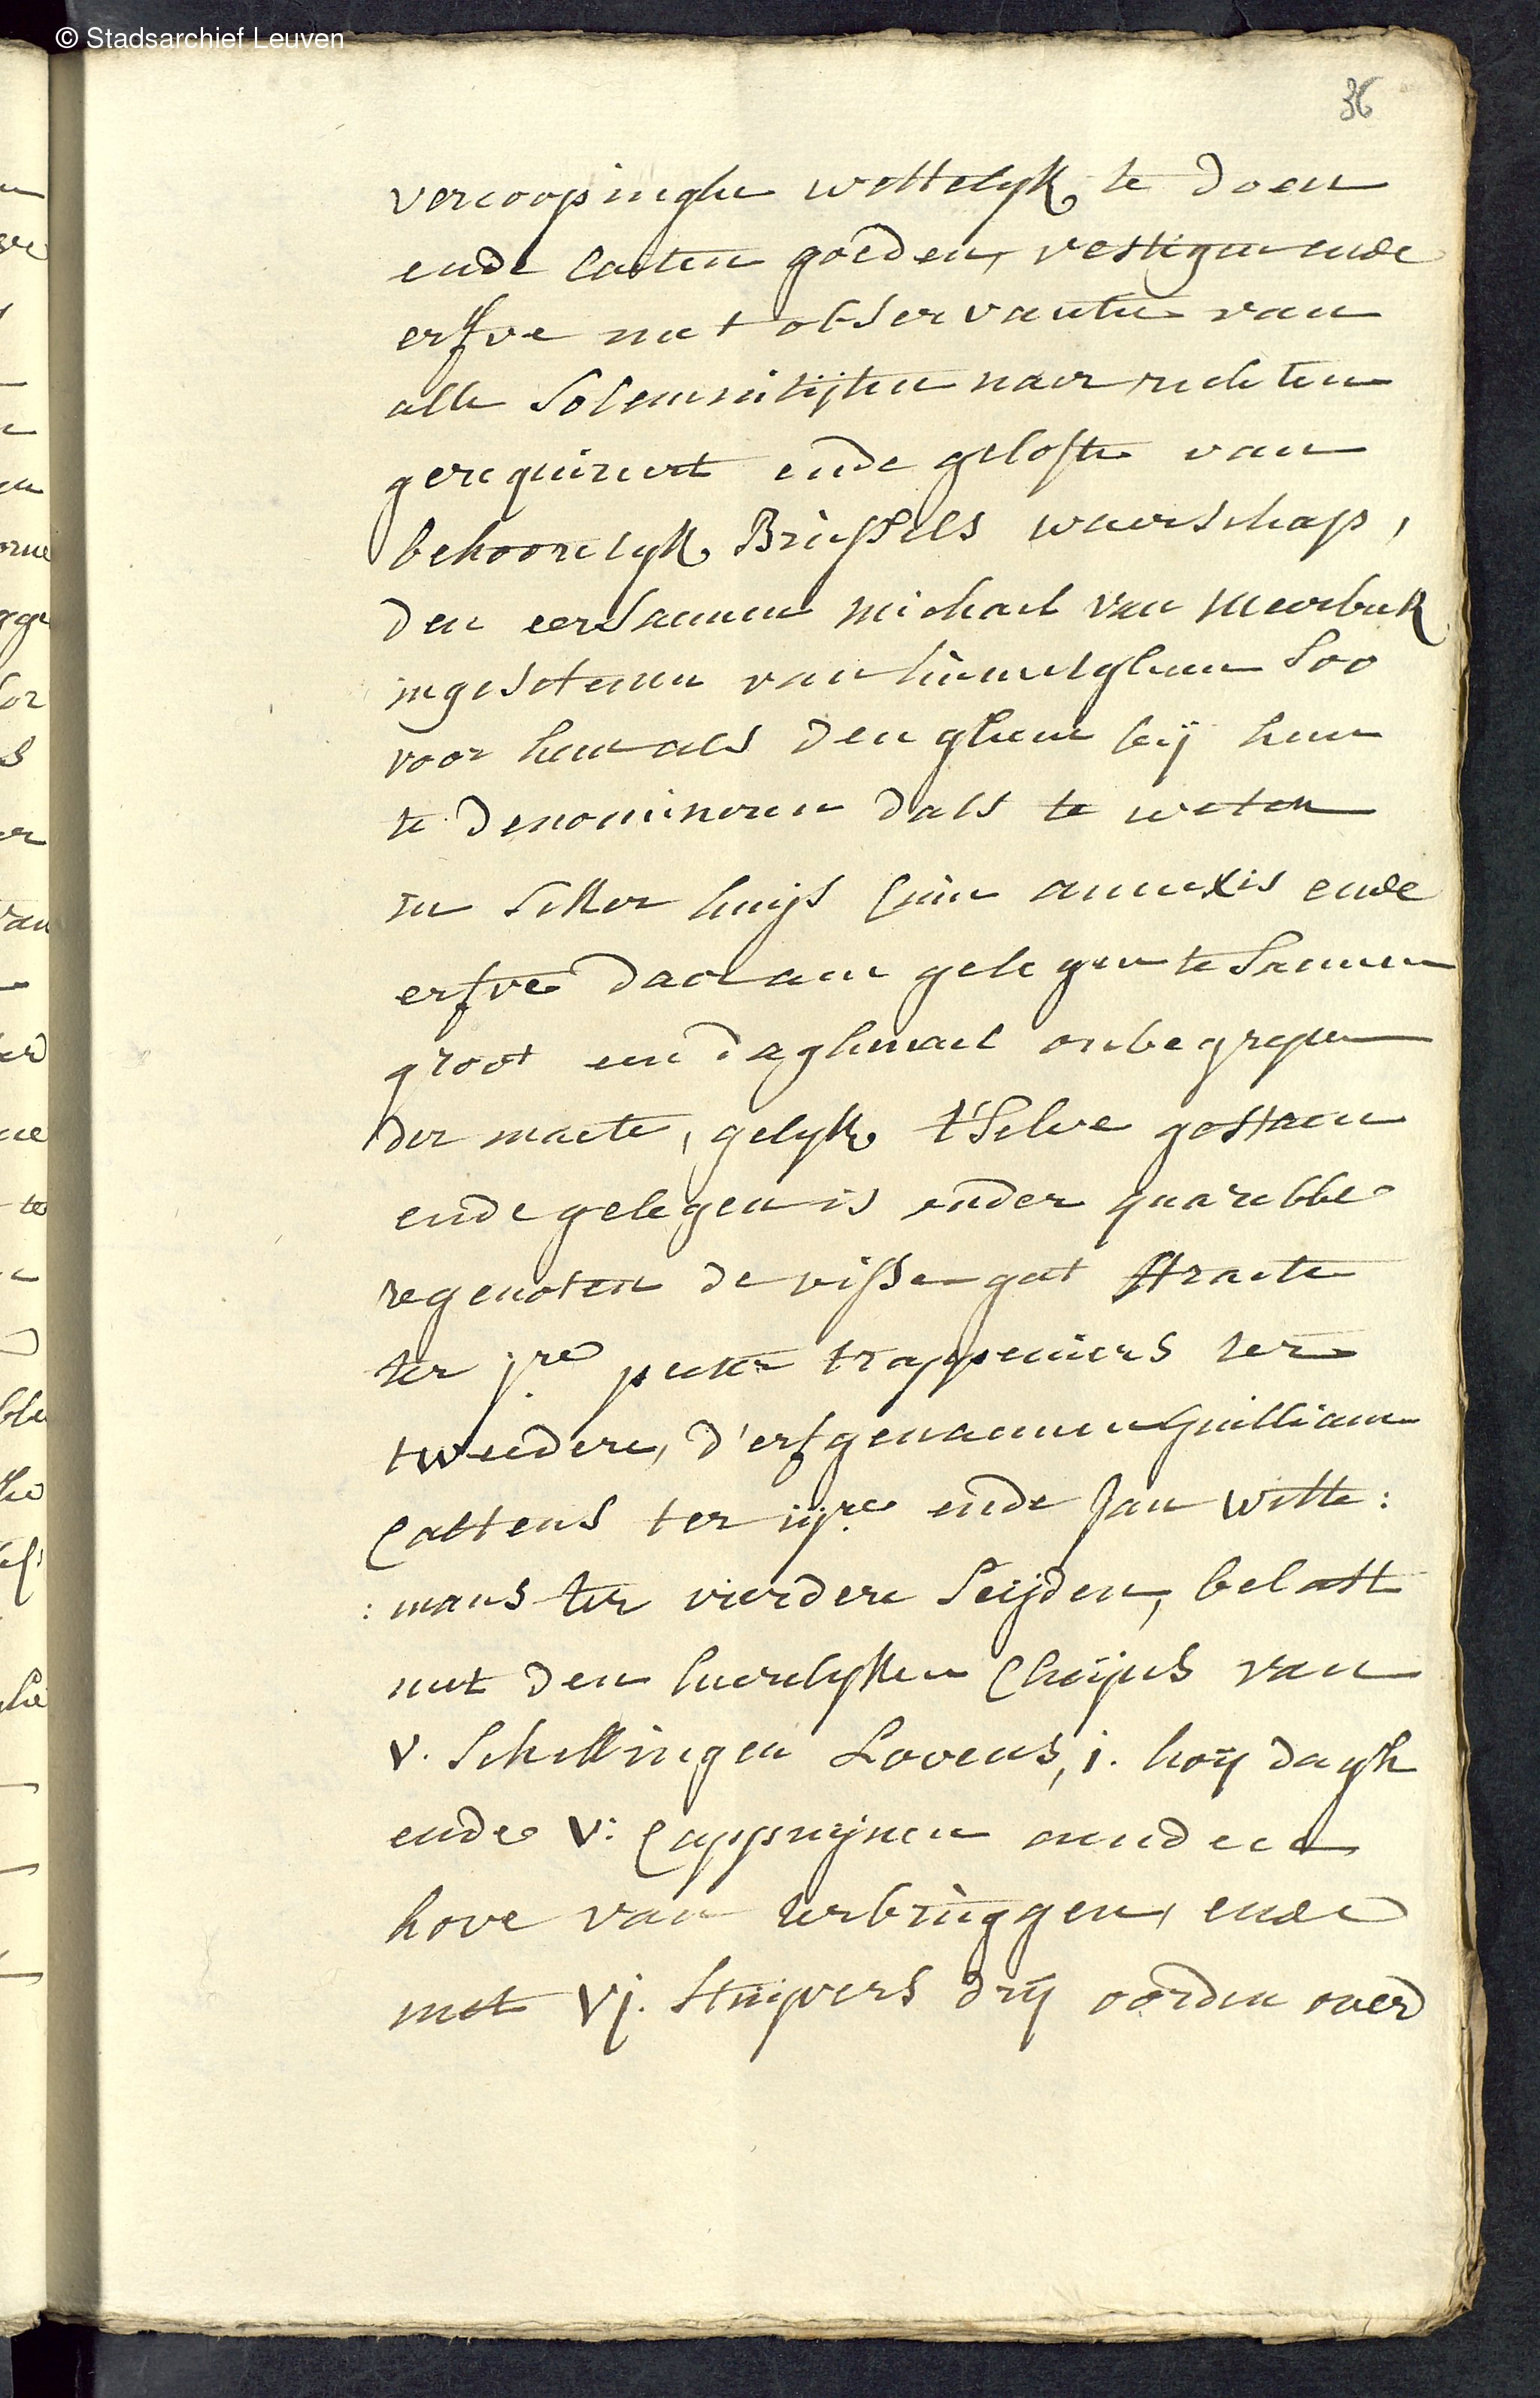 © Stadsarchief Leuven
36
vercoopinghe wettelyk te doen
ende laeten goeden, vestigen ende
erfve met observantie van
alle Solemnitijten naer rechten
gerequireert ende gelofte van
behoorelyk Brussels waerschap,
den eersaemen michael van meerbeek
ingesetenen van humelghem Soo
voor hem als den ghene bij hem
te denomineren dats te weten
in seker huijs cum annexis ende
erfve daer aen gelegen te Saemen
groot een daghmael onbegrepen
der maete, gelyk t'Selve gestaen
ende gelegen is onder quarebbe
regenoten de visse-gat straete
ter j.re peeter trappeniers ter
tweedere, d'erfgenaemen Guilliam
Cattens ter iij.re ende Jan Witte:
:mans ter vierdere Seijden, belast
met den heerelyken Chijns van
V. Schellingen Lovens, i. hoij dagh
ende V: Cappuijnen aen den
hove van terbruggen, ende
met Vj. Stuijvers drij oorden over